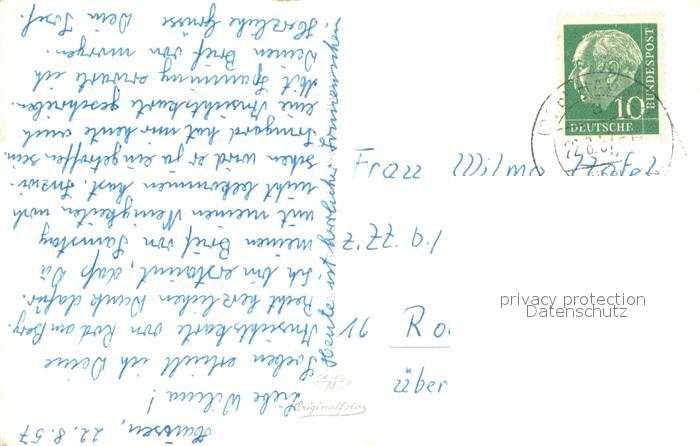 22.8.57
Liebe Wilma!
Soeben erhielt ich Deine
Ansichtskarte von Rod am Berg.
Recht herzlichen Dank dafür.
Ich bin erstaunt, daß Du
meinen Brief von Samstag
mit meinen Neuigkeiten noch
nicht bekommen hast. Inzwi-
schen wird er ja eingetroffen sein.
Irmgard hat mir heute auch
eine Ansichtskarte geschrieben.
Mit Spannung erwarte ich
Deinen Brief von morgen.
Herzliche Grüsse Dein Josef.
Heute ist herrlicher Sonnenschein.
BUNDESPOST
10
DEUTSCHE
22.8.57
Frau Wilma
z. Zt. b. /
16 Ro
über
privacy protection
Datenschutz
Originalfoto